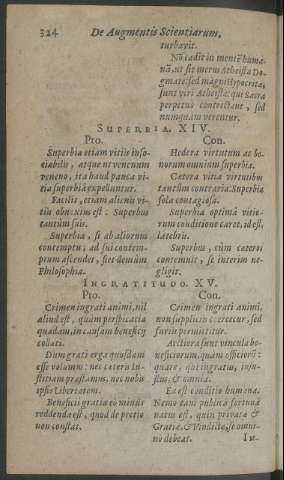 324 De Augmentis Scientiarum,
turbavit.
Nō cadit in mentē humanā,
ut sit merus Atheista Dogmate:
sed magni Hypocritæ,
sunt veri Atheistæ: qui Sacra
perpetuò contrectant, sed
nunquam verentur.
SUPERBIA. XIV.
Pro.
Superbia etiam vitiis insociabilis,
atque ut venenum
veneno, ita haud pauca vitia
superbiâ expelluntur.
Facilis, etiam alienis vitiis
obnoxius est: Superbus
tantùm suis.
Superbia, si ab aliorum
contemptu, ad sui contemptum
ascendet, fiet demùm
Philosophia.
Con.
Hedera virtutum ac bonorum
omnium superbia.
Cætera vitia virtutibus
tantùm contraria: Superbia
sola contagiosa.
Superbia optimâ vitiorum
conditione caret, id est,
latebris.
Superbus, cùm cæteros
contemnit, se interim negligit.
INGRATITUDO. XV.
Pro.
Crimen ingrati animi, nil
aliud est, quàm perspicacia
quædam, in causam beneficij
collati.
Dum grati erga quosdam
esse volumus: nec cæteris Iustitiam
præstamus, nec nobis
ipsis Libertatem.
Beneficii gratia eò minùs
reddenda est, quòd de pretio
non constat.
Con.
Crimen ingrati animi,
non suppliciis coercetur, sed
furiis permittitur.
Arctiora sunt vincula beneficiorum,
quàm officiorū:
quare, qui ingratus, injustus,
& omnia.
Ea est conditio humana.
Nemo tam publicâ fortunâ
natus est, quin privatæ &
Gratiæ, & Vindictæ, se omninò
debeat.